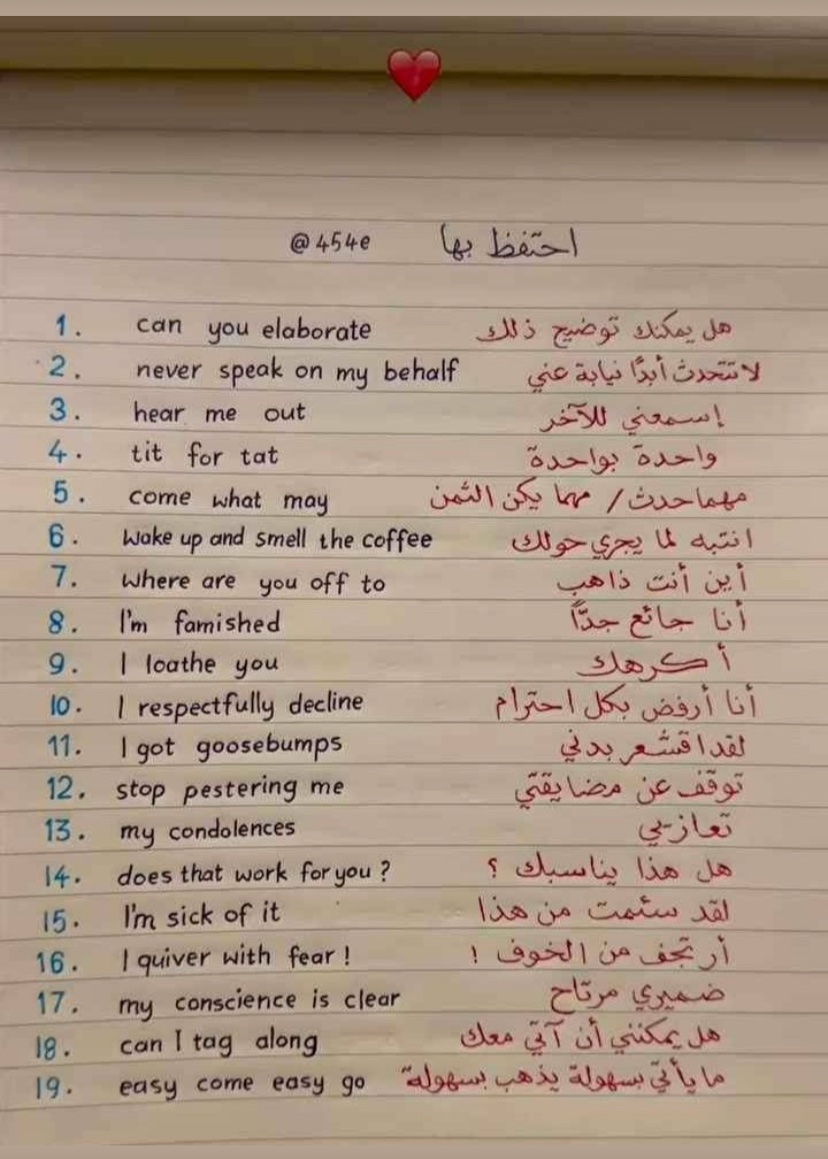 @454e احتفظ بها
1. can you elaborate هل يمكنك توضيح ذلك
2. never speak on my behalf لا تتحدث أبدًا نيابة عني
3. hear me out إسمعني للآخر
4. tit for tat واحدة بواحدة
5. come what may مهما حدث / مهما يكن الثمن
6. Wake up and smell the coffee انتبه لما يجري حولك
7. Where are you off to أين أنت ذاهب
8. I'm famished أنا جائع جدًّا
9. I loathe you أكرهك
10. I respectfully decline أنا أرفض بكل احترام
11. I got goosebumps لقد اقشعر بدني
12. stop pestering me توقف عن مضايقتي
13. my condolences تعازيي
14. does that work for you ? هل هذا يناسبك ؟
15. I'm sick of it لقد سئمت من هذا
16. I quiver with fear ! أرتجف من الخوف !
17. my conscience is clear ضميري مرتاح
18. can I tag along هل يمكنني أن آتي معك
19. easy come easy go ما يأتي بسهولة يذهب بسهولة"